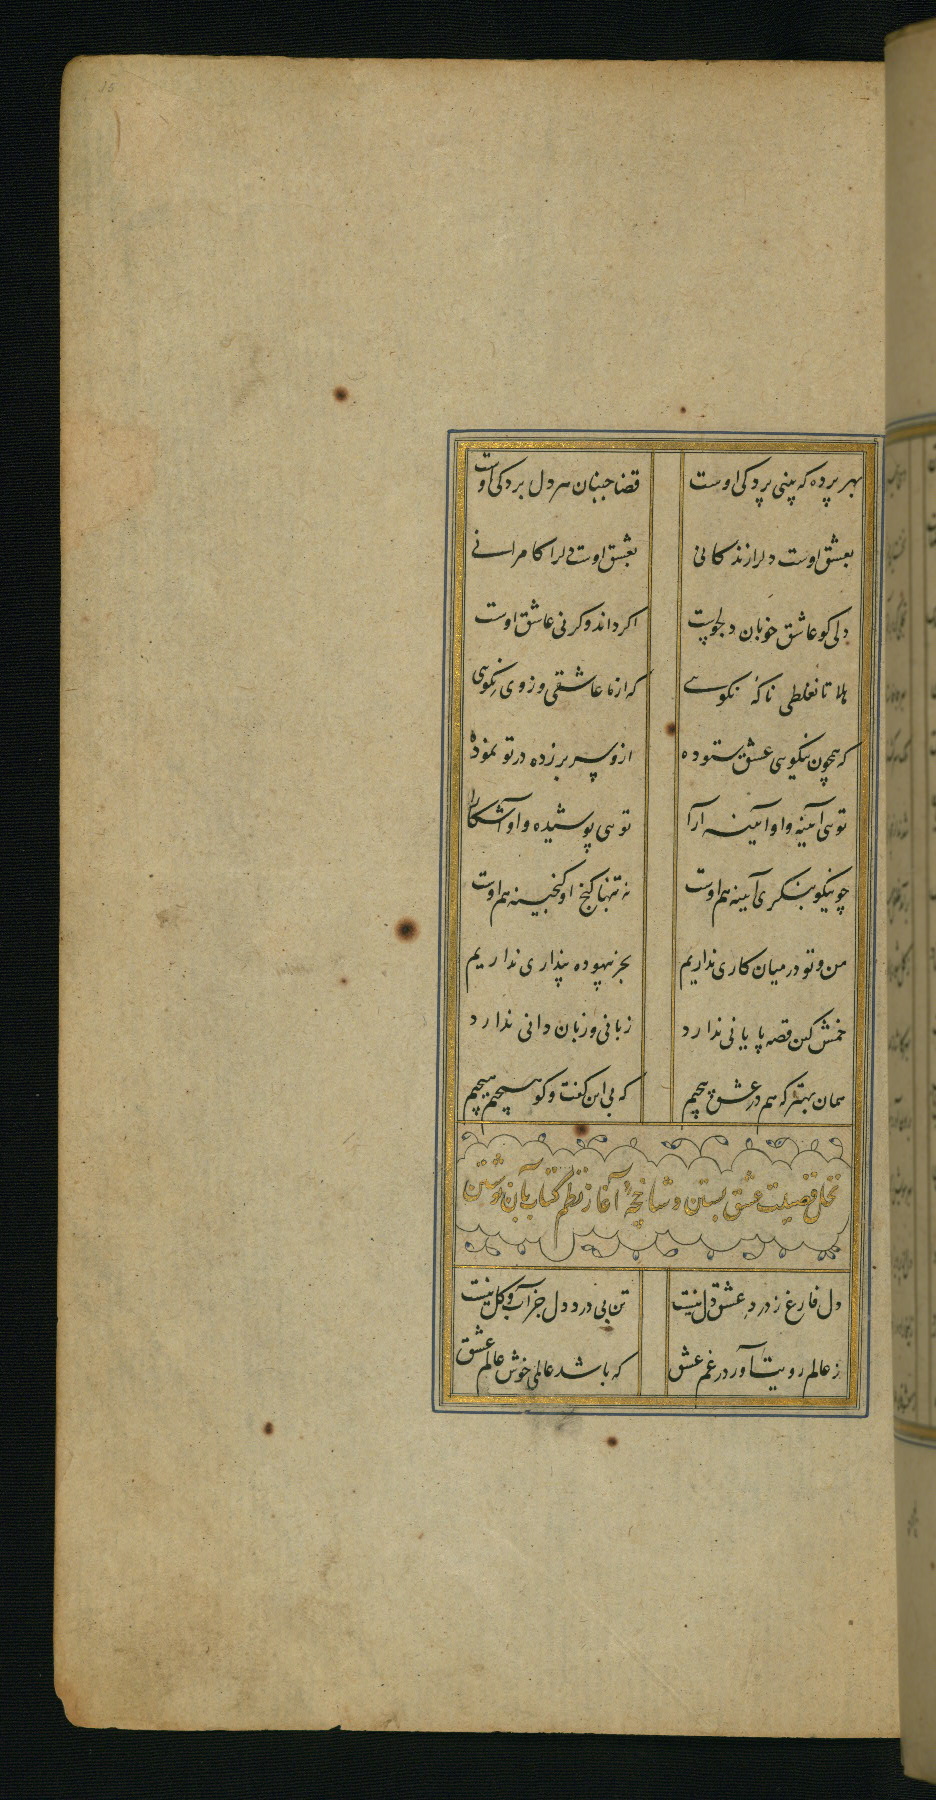 بهر پرده که بینی پردکی اوست قضا جنبان هر دل بردکی اوست
بعشق اوست دلرا زندکانی بعشق اوست دلرا کامرانی
دلی کو عاشق خوبان دلجوست اکر داند وکر نی عاشق اوست
هلا تا نغلطی ناکه نکوئی که از ما عاشقی وز وی نکوئی
که همچون نیکویی عشق ستوده ازو سر بر زده در تو نموده
تویی آیینه و او آیینه آرا تویی پوشیده و او آشکارا
چو نیکو بنکری آیینه هم اوست نه تنها کنج او کنجینه هم اوست
من و تو در میان کاری نداریم بجز بیهوده پنداری نداریم
خمش کین قصه پایانی ندارد زبانی و زبان دانی ندارد
همان بهتر که هم در عشق پیچیم که بی این کفت و کو هیچیم هیچیم
نخل فضیلت عشق بستن و شاخچه آغاز نظم کتاب بآن پیوستن
دل فارغ ز درد عشق دل نیست تن بی درد دل جز آب و کل نیست
ز عالم رویت آور در غم عشق که باشد عالمی خوش عالم عشق
15